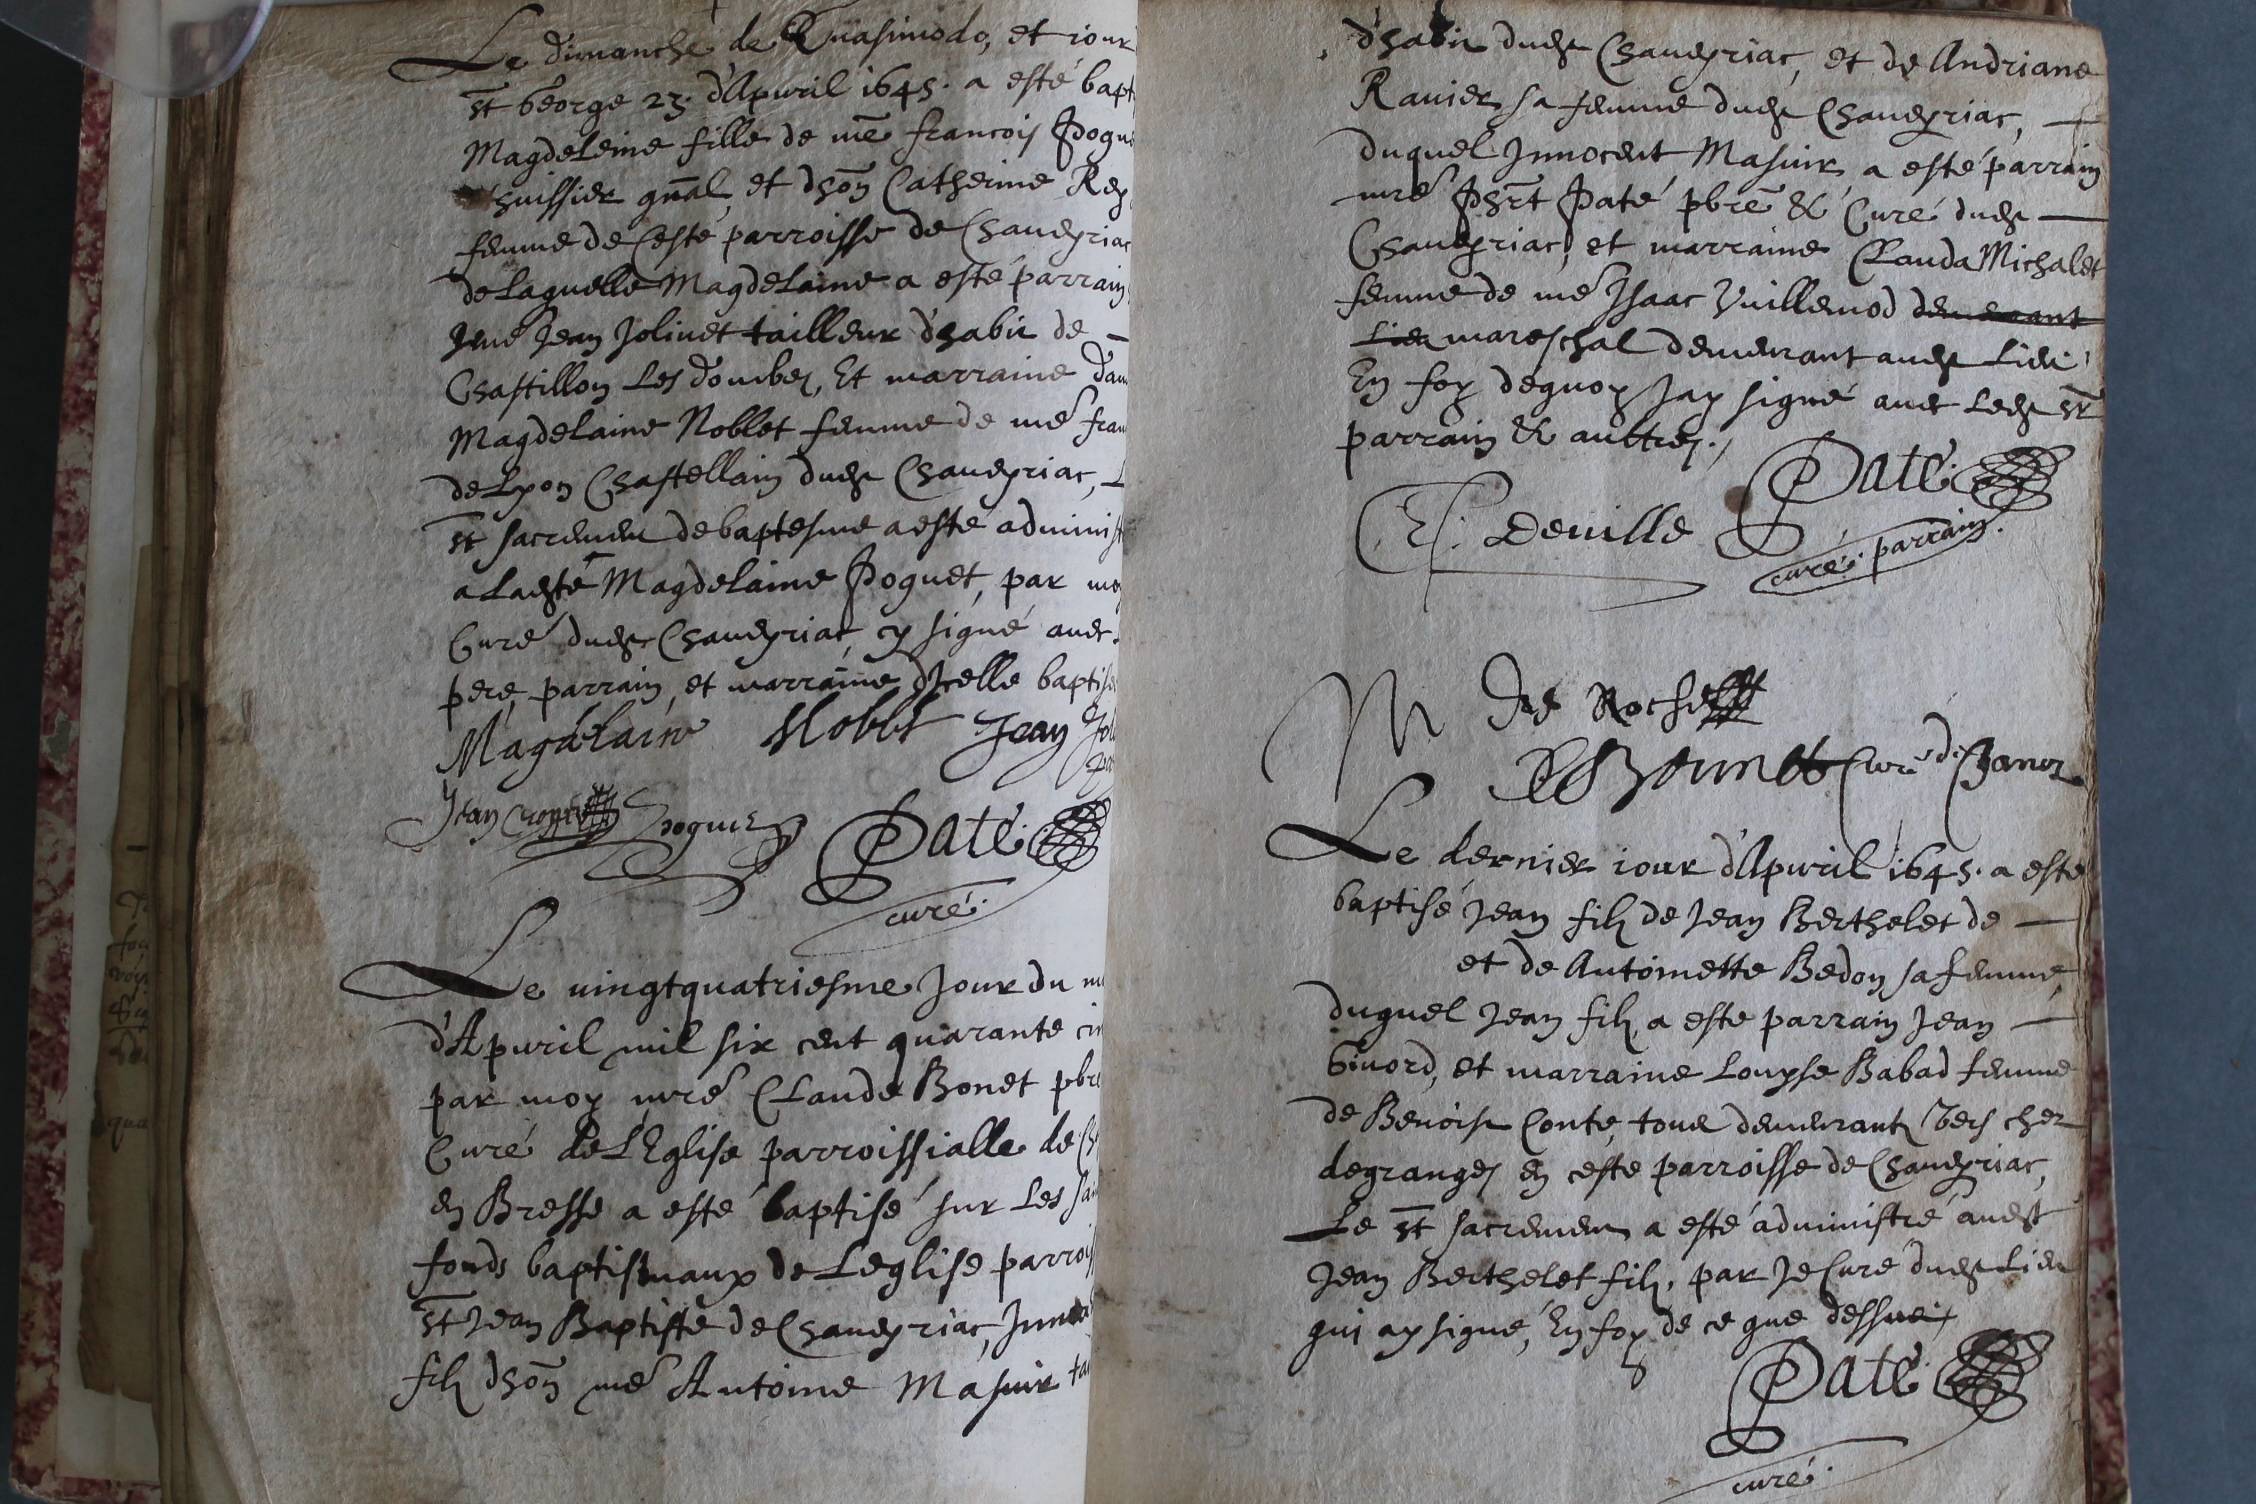 Le dimanche de Quasimodo, et iour
St George 23. d'Apuril 1645. a esté bapt
Magdeleine fille de me francois Pogu
huissier gnal, et dhon Catherine Rey
femme de ceste parroisse de Chaueyriac
de laquelle Magdelaine a esté parrain
Jean Joliuet tailleur d'habit de —
Chastillon Les dombes, Et marraine dam
Magdelaine Noblet femme de me fran
de Lyon Chastellain dudt Chaueyriac, L
St sacrement de baptesme a esté administ
a Ladte Magdelaine Poguet, par moy
Curé dudt Chaueyriac, cy signé auec
pere, parrain, et marraine d'Icelle baptisé
Magdelaine Noblet Jean Jol
Jean Poguet Paté.
curé.
Le uingtquatriesme Jour du m
d'Apuril mil six cent quarante cin
par moy mre Claude Bonet pbre
Curé de L'Eglise parroissialle de
en Bresse a esté baptisé sur Les sain
fonds baptismaux de Leglise parrois
St Jean Baptiste de Chaueyriac,
filz dhon me Antoine Masuir ta
d'habit dudt Chaueyriac, et de Andriane
Rauier sa femme dudt Chaueyriac, —
duquel Innocent Masuir a esté parrain
mre Phrt Paté pbre & Curé dudt —
Chaueyriac, et marraine Clauda Michalet
femme de me Isaac Vuillemod demeurant
Lieu mareschal demeurant audt Lieu
En foy dequoy Jay signé auec Ledt Sr
parrain & aultres.
Paté.
Deuille
curé. parrain.
M De Roche
Bonnet Curé de
Le dernier iour d'Apuril 1645. a esté
baptisé Jean filz de Jean Berthelet de —
et de Antoinette Bedon sa femme,
duquel Jean filz a esté parrain Jean —
Giuord, et marraine Louyse Babad femme
de Benoist Conte, tous demeurantz Vers chez
degranges en ceste parroisse de Chaueyriac,
Le St sacrement a esté administré audt
Jean Berthelet filz, par Je Curé dudt Lieu
qui ay signé, En foy de ce que dessus
Paté.
curé.